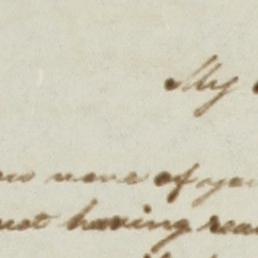 My
none of you
not having rea